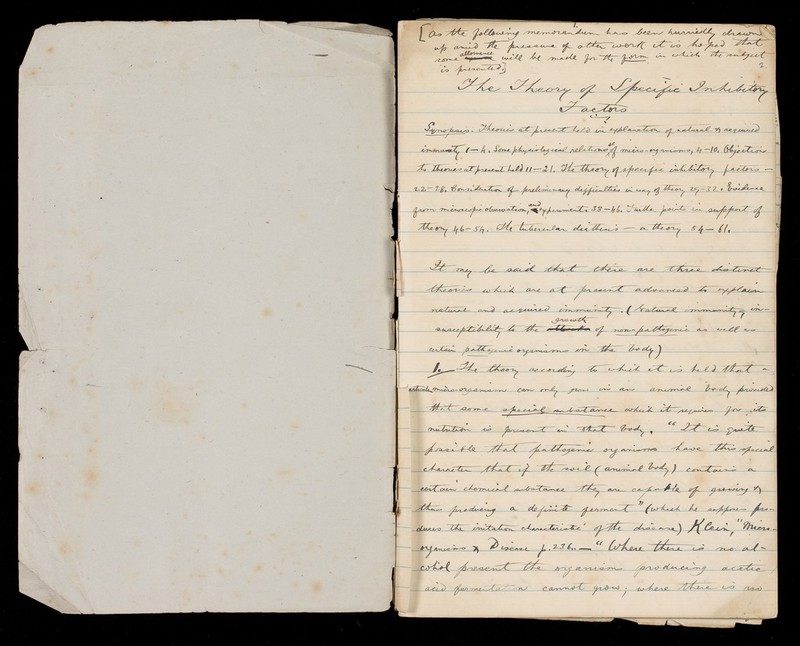 1.
[As the following memorandum has been hurriedly drawn
up amid the pressure of other work it is hoped that
some allowance will be made for the form in which the subject
is presented.]
The Theory of Specific Inhibitory
Factors
Synopsis. Theories at present held in explanation of natural & acquired
immunity 1–4. Some physiological relations of micro-organisms, 4–10. Objections
to theories at present held 11–21. The theory of specific inhibitory factors –
22–28. Consideration of preliminary difficulties in way of theory 29–32. Evidence
from microscopic observation, and experiments 33–45. Further points in support of
theory 46–54. The tubercular diathesis – a theory 54–61.
It may be said that there are three distinct
theories which are at present advanced to explain
natural and acquired immunity. (Natural immunity = in-
susceptibility to the growth of non-pathogenic as well as
certain pathogenic organisms in the body)
1. The theory according to which it is held that a
micro-organism can only grow in an animal body provided
that some special substance which it requires for its
nutrition is present in that body. "It is quite
possible that pathogenic organisms have this special
character that if the soil (animal body) contains a
certain chemical substance they are capable of growing &
thus producing a definite ferment" (which he supposes pro-
duces the irritation characteristic of the disease) Klein, "Micro-
organisms & Disease p. 236. – "Where there is no al-
cohol present the organism producing acetic
acid fermentation cannot grow; where there is no